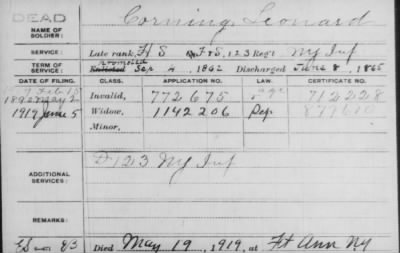 DEAD
NAME OF SOLDIER: Corning, Leonard
SERVICE: Late rank, H S F&S, 123 Reg't Ny Inf
TERM OF SERVICE: Enlisted Sep 4, 1862 Discharged June 8, 1865
DATE OF FILING. CLASS. APPLICATION NO. LAW. CERTIFICATE NO.
1890 May 2 Invalid, 772675 age 712228
1919 June 5 Widow, 1142206 Dep
Minor,
ADDITIONAL SERVICES: D 123 Ny Inf
REMARKS:
Died May 19, 1919, at Ft Ann Ny